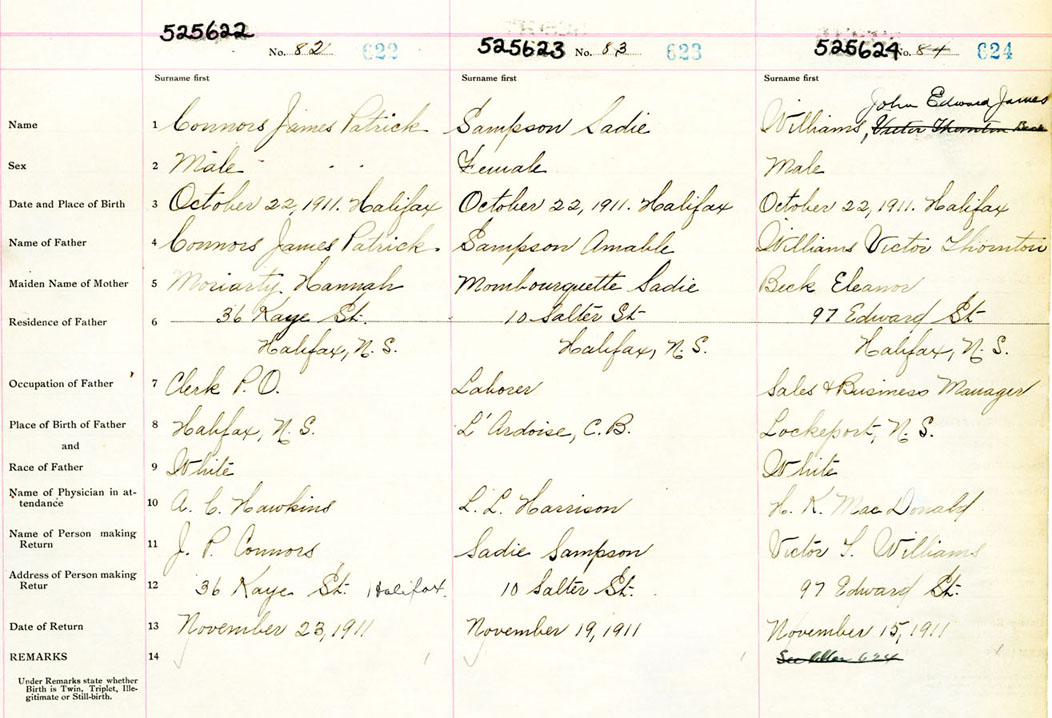 525622 No. 82 622 525623 No. 83 623 525624 No. 84 624
Surname first Surname first Surname first
John Edward James
Name 1 Connors James Patrick Sampson Sadie Williams, Victor Thornton Beck
Sex 2 Male Female Male
Date and Place of Birth 3 October 22, 1911. Halifax October 22, 1911. Halifax October 22, 1911. Halifax
Name of Father 4 Connors James Patrick. Sampson Amable Williams Victor Thornton
Maiden Name of Mother 5 Moriarty. Hannah Mombourquette Sadie Beck Eleanor
Residence of Father 6 36 Kaye St. 10 Salter St 97 Edward St
Halifax, N.S. Halifax, N.S. Halifax, N.S.
Occupation of Father 7 Clerk P.O. Laborer Sales & Business Manager
Place of Birth of Father 8 Halifax, N.S. L'Ardoise, C.B. Lockeport, N.S.
and
Race of Father 9 White White
Name of Physician in at-
tendance 10 A. C. Hawkins L. L. Harrison H. K. MacDonald
Name of Person making
Return 11 J. P. Connors Sadie Sampson Victor T. Williams
Address of Person making
Retur 12 36 Kaye St. Halifax. 10 Salter St. 97 Edward St.
Date of Return 13 November 23, 1911 November 19, 1911 November 15, 1911
REMARKS 14 See 624
Under Remarks state whether
Birth is Twin, Triplet, Ille-
gitimate or Still-birth.